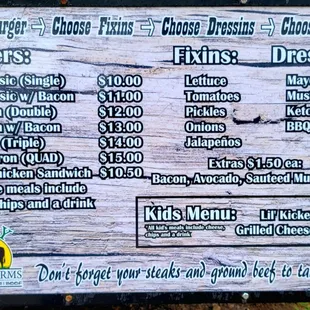 urger → Choose Fixins → Choose Dressins → Choos
ers:
Fixins:
Dres
sic (Single) $10.00
sic w/ Bacon $11.00
(Double) $12.00
w/ Bacon $13.00
(Triple) $14.00
ron (QUAD) $15.00
hicken Sandwich $10.50
meals include
hips and a drink
Lettuce
Tomatoes
Pickles
Onions
Jalapeños
May
Mus
Ketc
BBQ
Extras $1.50 ea:
Bacon, Avocado, Sauteed Mu
Kids Menu:
*All kid's meals include cheese,
chips and a drink
Lil' Kicke
Grilled Chees
RMS
Don't forget your steaks and ground beef to ta